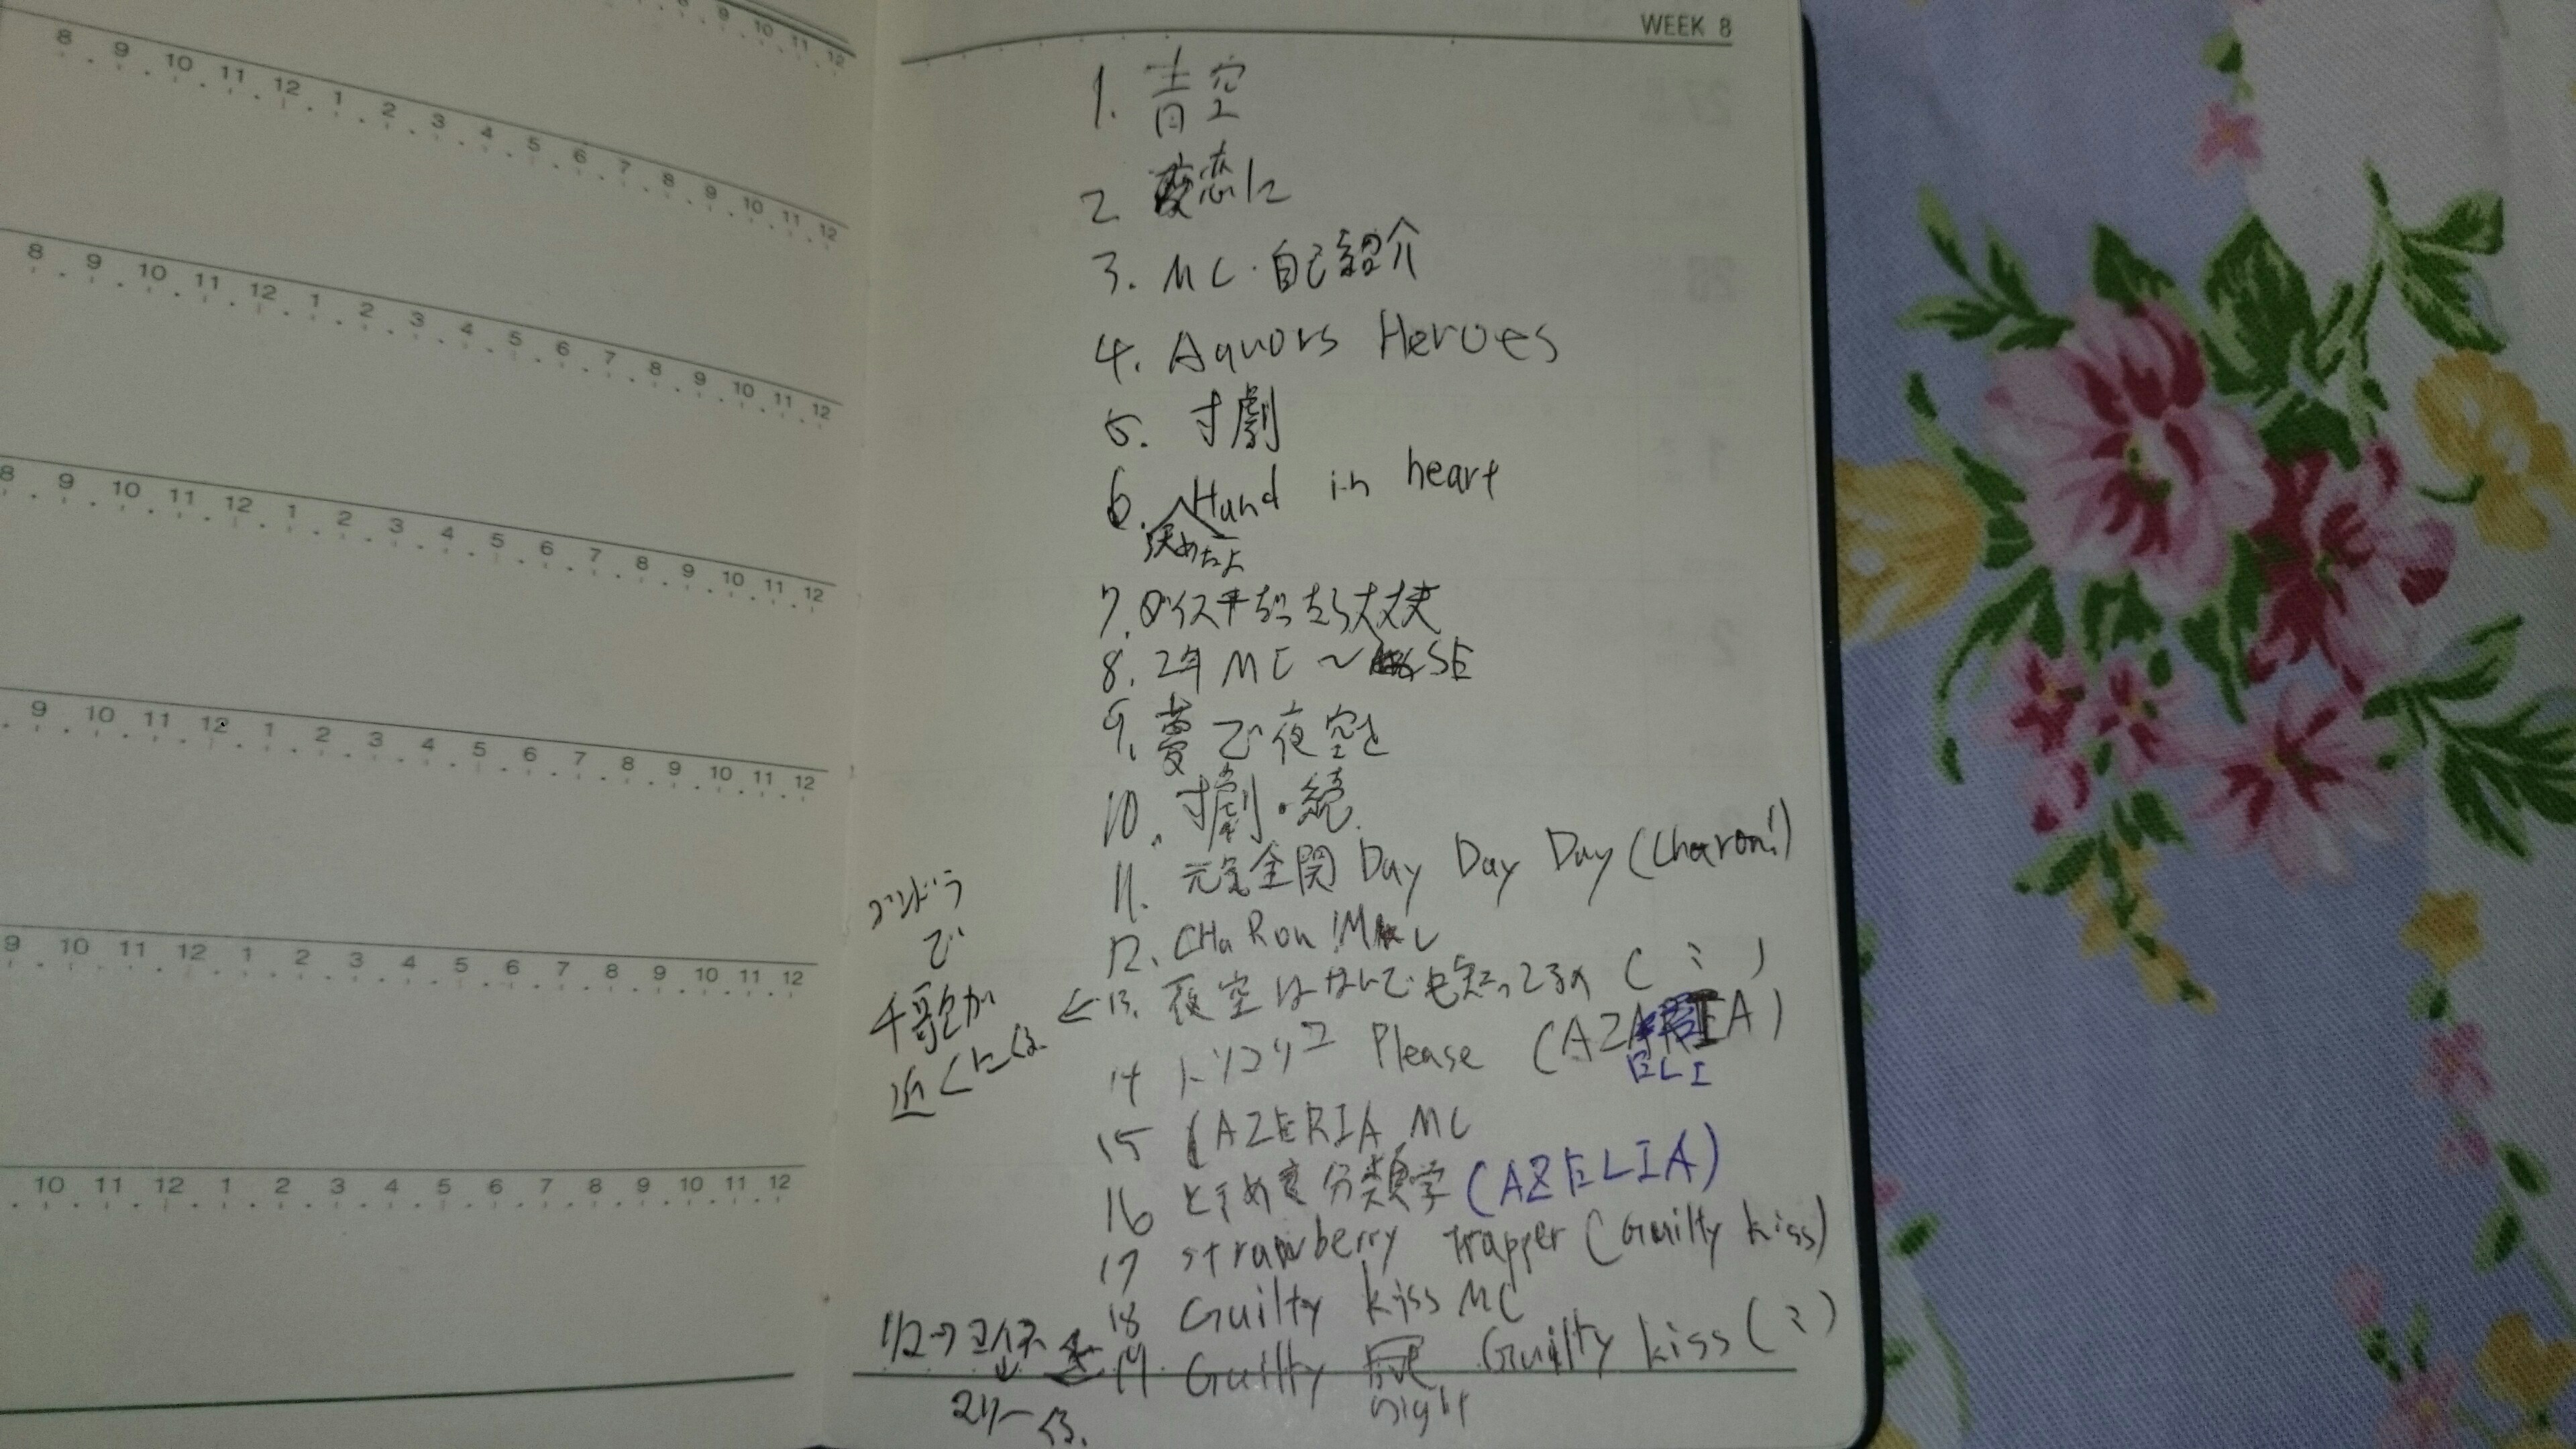 8 9 10 11 12
8 9 10 11 12 1 2 3 4 5 6 7 8 9 10 11 12
8 9 10 11 12 1 2 3 4 5 6 7 8 9 10 11 12
8 9 10 11 12 1 2 3 4 5 6 7 8 9 10 11 12
9 10 11 12 1 2 3 4 5 6 7 8 9 10 11 12
9 10 11 12 1 2 3 4 5 6 7 8 9 10 11 12
10 11 12 1 2 3 4 5 6 7 8 9 10 11 12
WEEK 8
1. 青空
2 恋に
3. MC・自己紹介
4. Aquors Heroes
5. 寸劇
6. Hand in heart
決めたよ
7. ダイスキだったら大丈夫
8. 2年 MC 〜 SE
9. 夢で夜空を
10. 寸劇・続
11. 元気全開 Day Day Day (Charon!)
12. CHaRon! MC
13. 夜空はなんでも知ってるの (〃)
ゴンドラ
で
千歌が
近くにくる
←
14 トリコリコ Please (AZELIA)
15 AZERIA MC
16 ときめき分類学 (AZELIA)
17 strawberry trapper (Guilty kiss)
18 Guilty kiss MC
19 Guilty night Guilty kiss (〃)